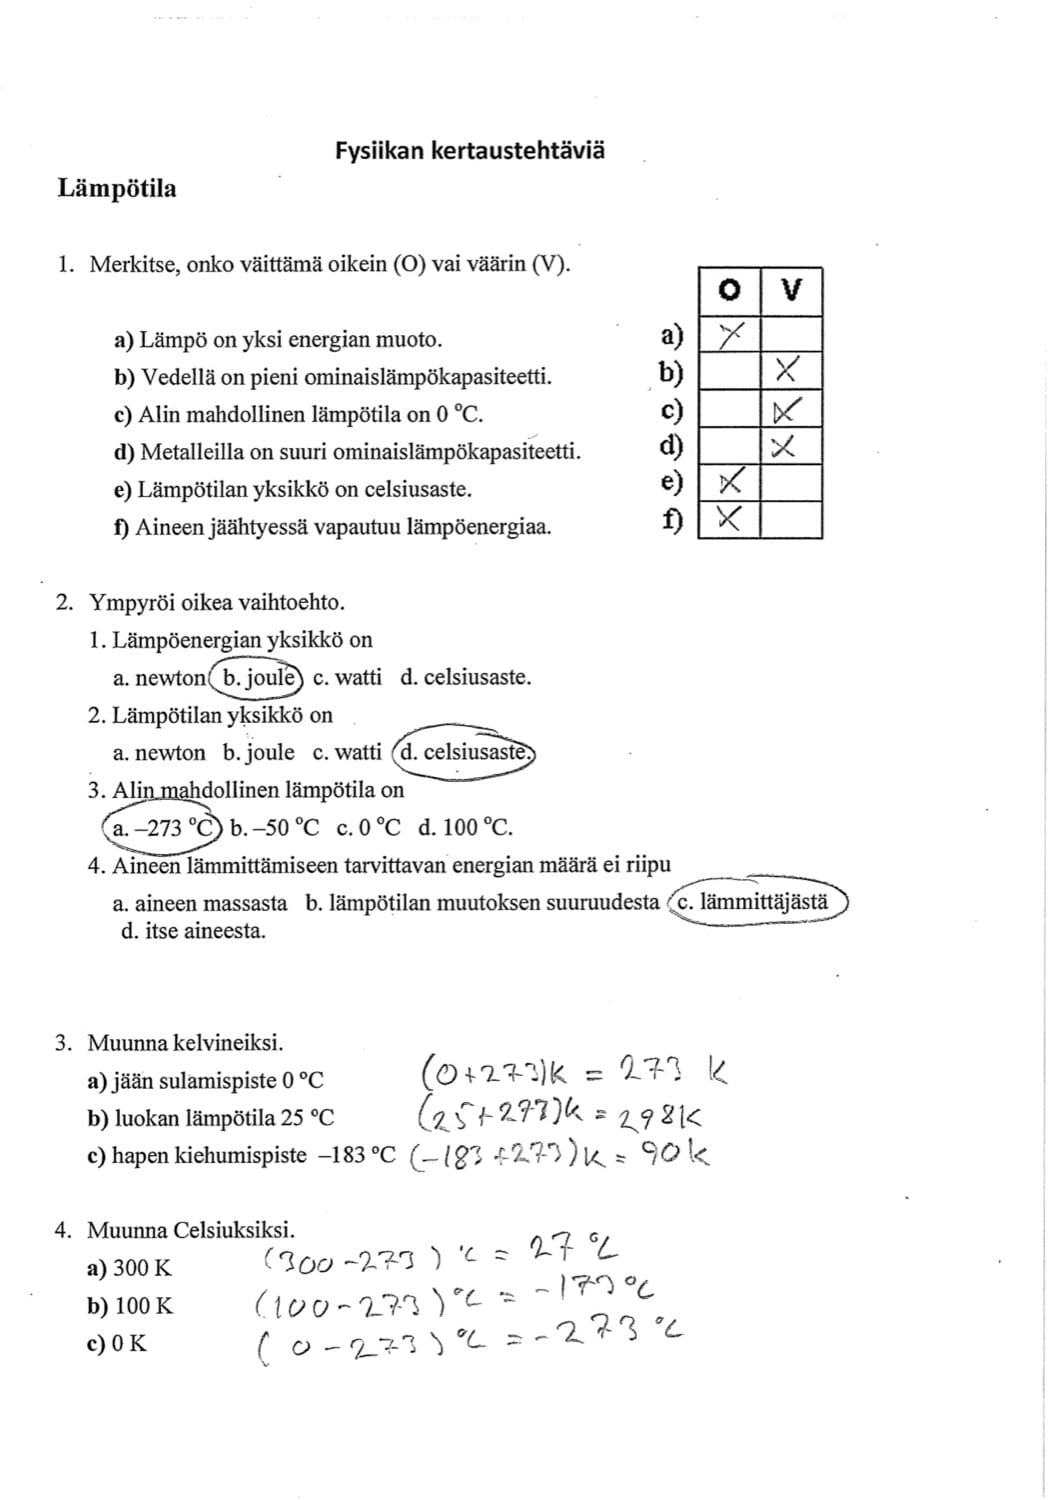 Fysiikan kertaustehtäviä
Lämpötila
1. Merkitse, onko väittämä oikein (O) vai väärin (V).
O V
a) Lämpö on yksi energian muoto. a) X
b) Vedellä on pieni ominaislämpökapasiteetti. b) X
c) Alin mahdollinen lämpötila on 0 °C. c) X
d) Metalleilla on suuri ominaislämpökapasiteetti. d) X
e) Lämpötilan yksikkö on celsiusaste. e) X
f) Aineen jäähtyessä vapautuu lämpöenergiaa. f) X
2. Ympyröi oikea vaihtoehto.
1. Lämpöenergian yksikkö on
a. newton b. joule c. watti d. celsiusaste.
2. Lämpötilan yksikkö on
a. newton b. joule c. watti d. celsiusaste.
3. Alin mahdollinen lämpötila on
a. –273 °C b. –50 °C c. 0 °C d. 100 °C.
4. Aineen lämmittämiseen tarvittavan energian määrä ei riipu
a. aineen massasta b. lämpötilan muutoksen suuruudesta c. lämmittäjästä
d. itse aineesta.
3. Muunna kelvineiksi.
a) jään sulamispiste 0 °C (0+273)K = 273 K
b) luokan lämpötila 25 °C (25+273)K = 298K
c) hapen kiehumispiste –183 °C (-183+273)K = 90K
4. Muunna Celsiuksiksi.
a) 300 K (300-273)°C = 27 °C
b) 100 K (100-273)°C = -173 °C
c) 0 K (0-273)°C = -273 °C